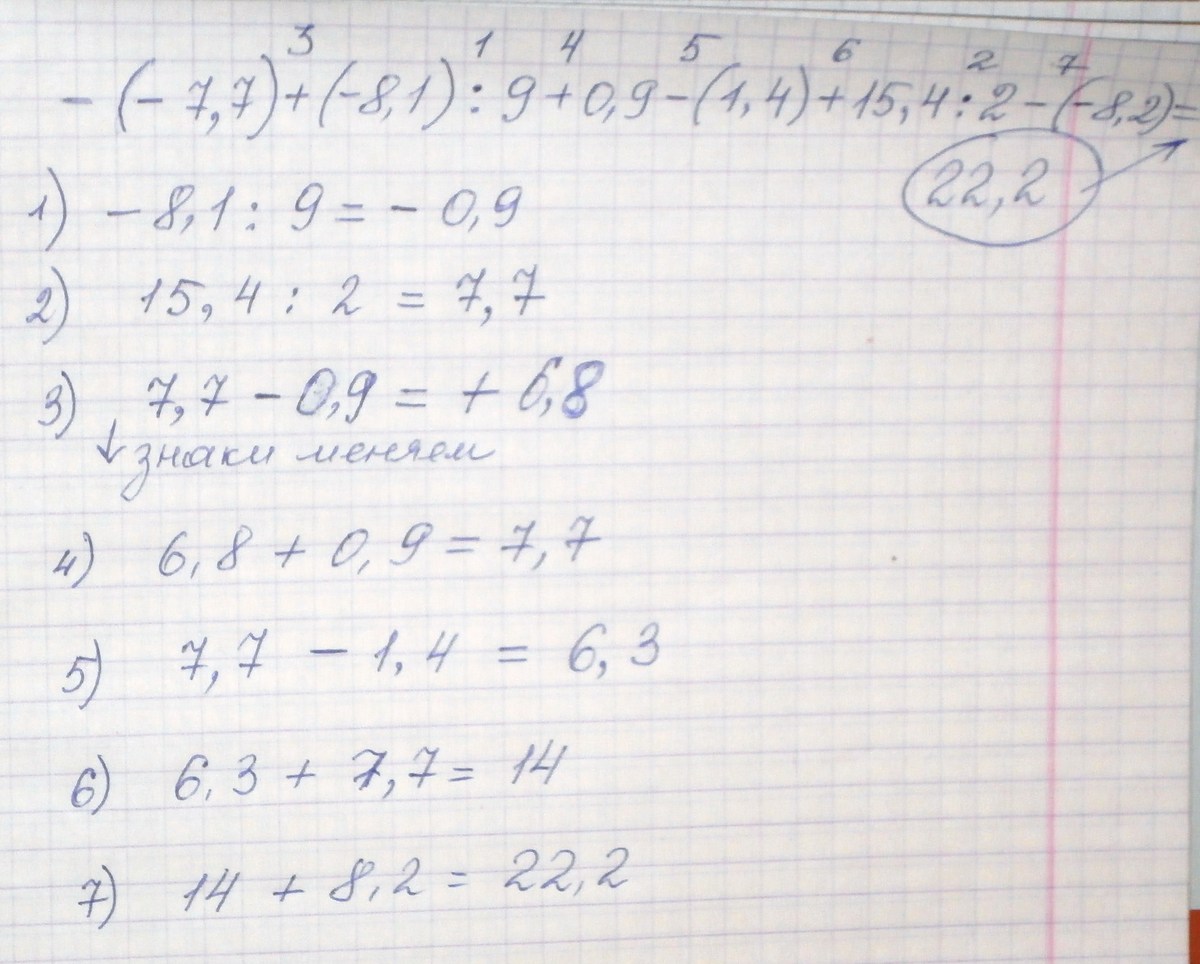 3 1 4 5 6 2 7
- (- 7,7) + (-8,1) : 9 + 0,9 - (1,4) + 15,4 : 2 - (-8,2) =
22,2
1) - 8,1 : 9 = - 0,9
2) 15,4 : 2 = 7,7
3) 7,7 - 0,9 = + 6,8
↓ знаки меняем
4) 6,8 + 0,9 = 7,7
5) 7,7 - 1,4 = 6,3
6) 6,3 + 7,7 = 14
7) 14 + 8,2 = 22,2